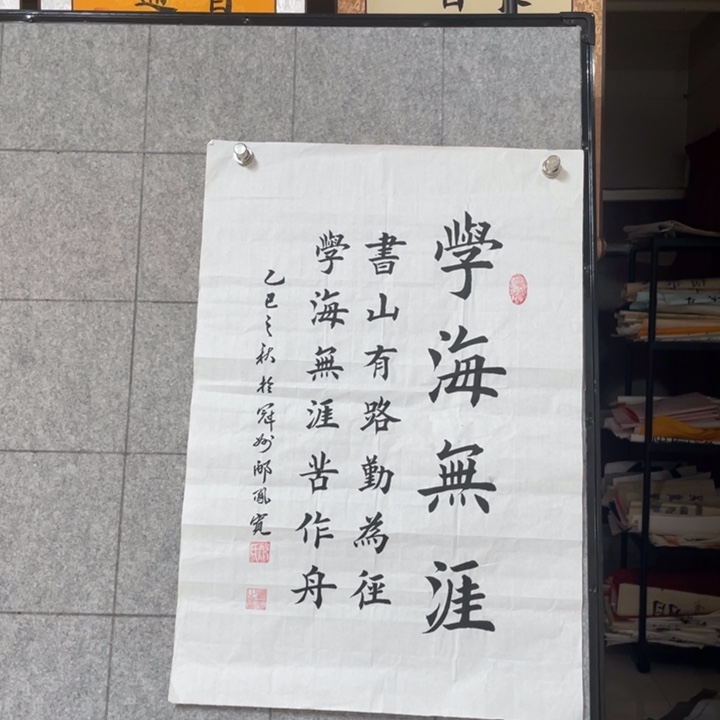 學海無涯
書山有路勤為徑
學海無涯苦作舟
乙巳之秋於冠州邴鳳寬